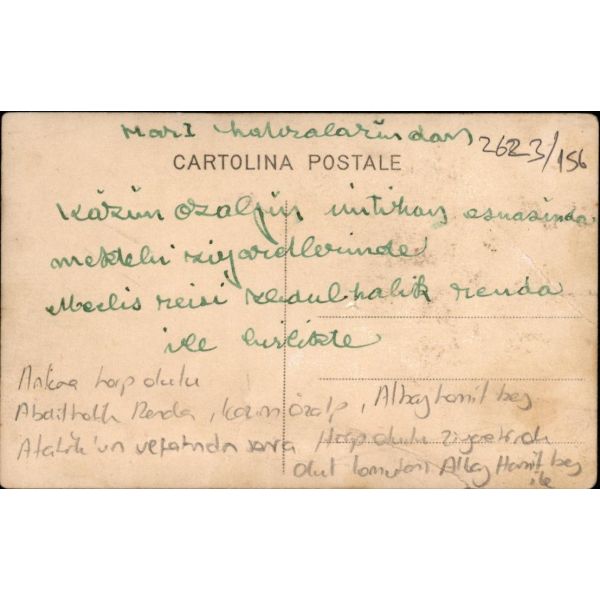 Harb hatıralarından
2623/156
CARTOLINA POSTALE
Kâzım Özalpın imtihan esnasında
mektebi ziyaretlerinde
Meclis reisi Abdulhalik renda
ile birlikte
Ankara harp okulu
Abdülhalik Renda, Kazım Özalp, Albay Hamit bey
Atatürk'ün vefatından sonra Harp okulu ziyaretinde
okul komutanı Albay Hamit bey
ile